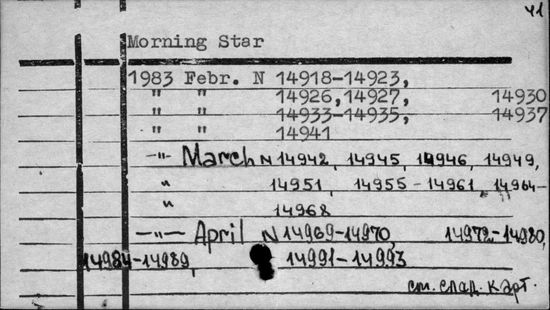 41
Morning Star
1983 Febr. N 14918-14923,
" " 14926,14927, 14930
" " 14933-14935, 14937
" " 14941
-"- March N 14942, 14945, 14946, 14949,
" 14951, 14955-14961, 14964-
" 14968
-"- April N 14969-14970, 14972-14980,
14984-14989, 14991-14993
см. след. карт.